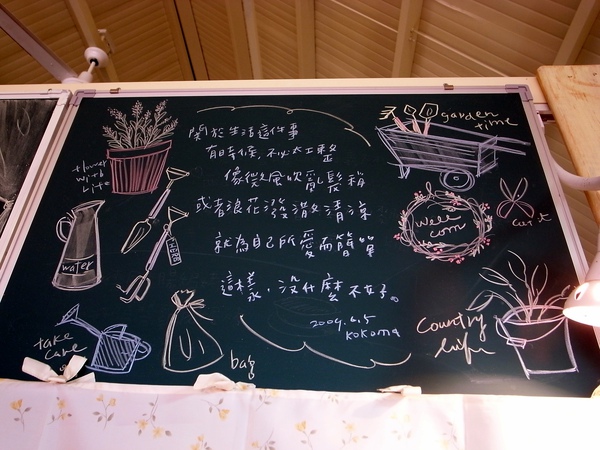 關於生活這件事
有時候，不必太工整
像微風吹亂髮梢
或者浪花潑濺清涼
就為自己所愛而簡單
這樣，沒什麼不好。
2009.6.5
KOKOMO
flower
with
water
HERB
take
care
bag
garden
time
well
com
cart
Country
life